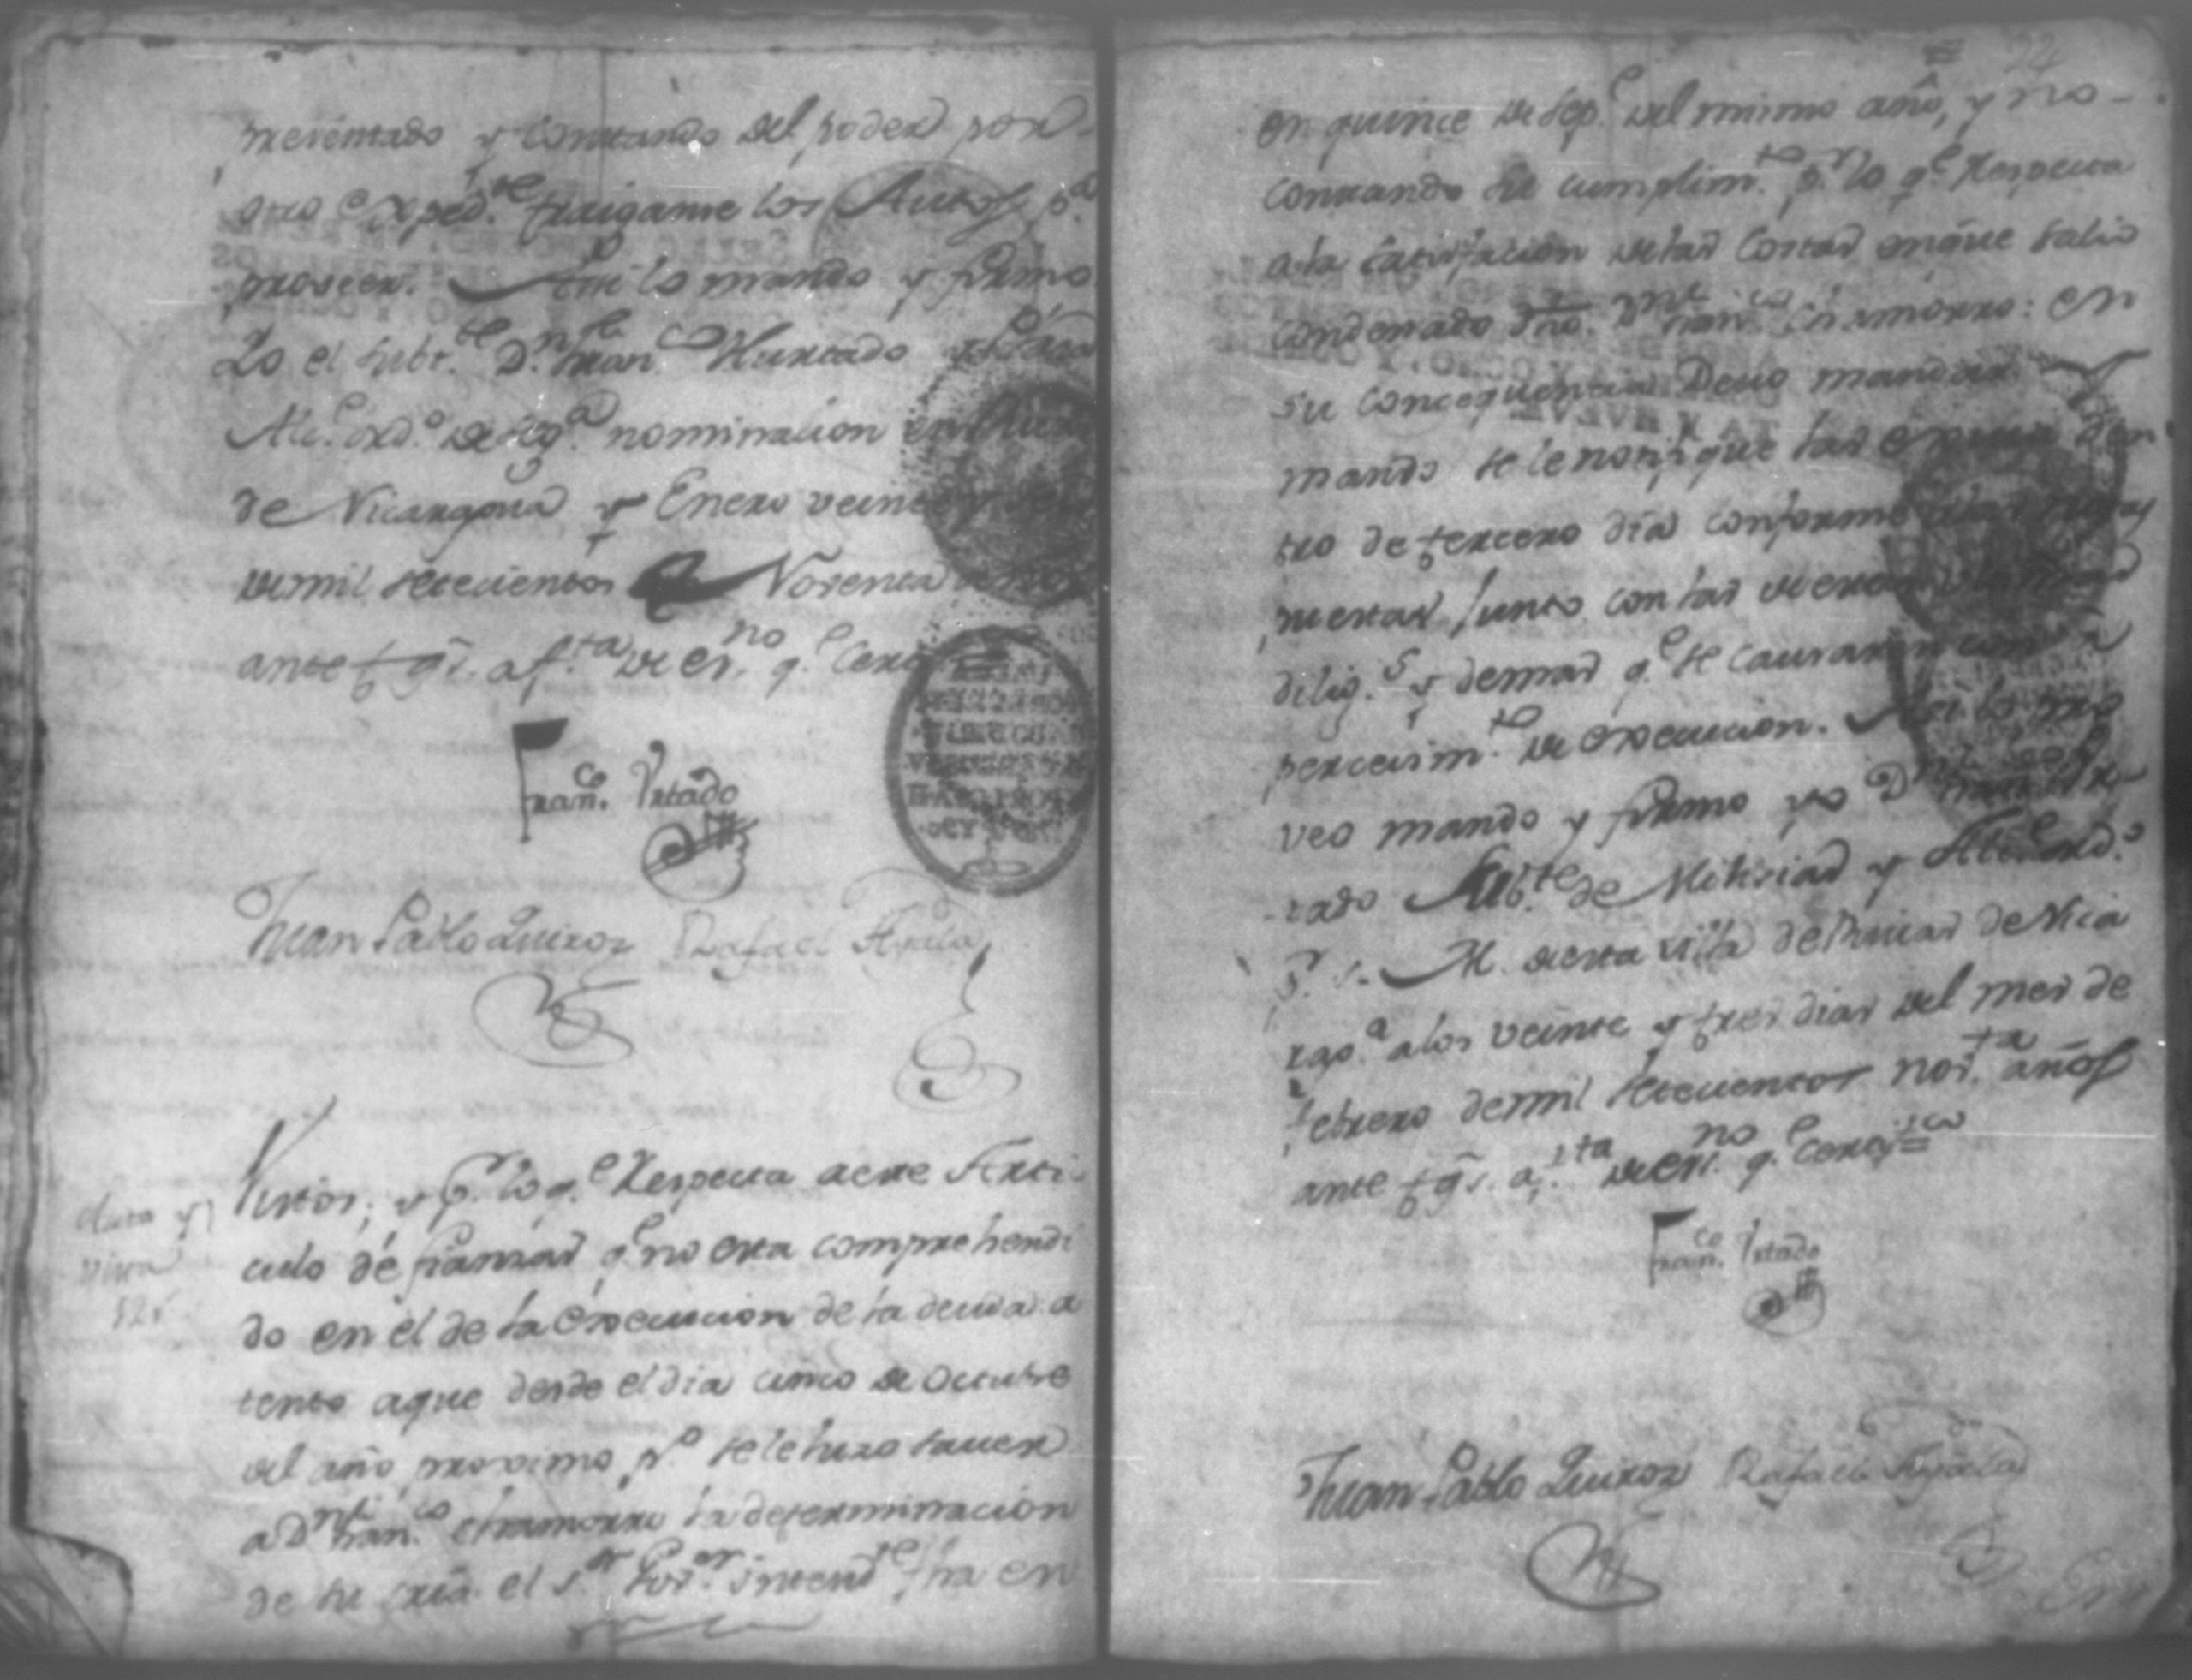 presentado y constando del poder por
otro exped.te traiganse los Autos p.a
proveer. Asi lo mando y firmo
Yo el subt.te D.n Fran.co Hurtado
Alc.e ord.o de seg.a nominacion en
de Nicaragua y Enero veinte
de mil setecientos Noventa
ante tgs. a f.ta de es.no q.e
Fran.co Vrtado
Juan Pablo Quiroz Rafael Ayala
Auto y
vista
Vistos; y p.r lo q.e Respecta a este Arti-
culo de fianzas q.e no esta comprehendi
do en el de la execucion de la deuda a
tento a que desde el dia cinco de Octubre
del año proximo p.o se le hizo saver
a D.n Fran.co Chamorro la determinacion
de su sria. el s.or Gov.or Intend.te fha en
22
en quince de Sep.e del mismo año, y no
constando su cumplim.to p.r lo q.e Respecta
a la satisfacion de las Costas en que salio
condenado dho. D.n Fran.co Chamorro: en
su concequencia Devo mandar y
mando se le notifique las den
tro de tercero dia conforme
puestas junto con las
dilig.s y demas q.e se causaren
percevim.to de execucion. Asi lo pro
veo mando y firmo yo D.n
tado Subt.te de Milicias y Alc.e ord.o
p.r S. M. de esta villa de Rivas de Nica
rag.a a los veinte y tres dias del mes de
febrero de mil setecientos nov.ta años
ante tgs. a f.ta de es.no q.e certifico=
Fran.co Vrtado
Juan Pablo Quiroz Rafael Ayala
En